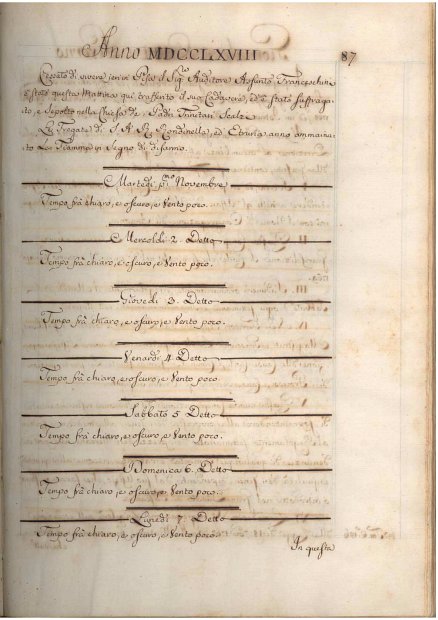 Anno MDCCLXVIII
87
Cessato di vivere ieri in Pisa il Sigr. Auditore Assunto Franceschini
è stato questa Mattina qui trasferito il suo Cadavere, ed è stato suffraga-
to, e Sepolto nella Chiesa de' Padri Trinitari Scalzi.
Le Fregate di S. A. R. Rondinella, ed Etruria anno ammaina-
to Le Fiamme in Segno di disarmo.
Martedi pmo. Novembre
Tempo frà chiaro, e oscuro, e Vento poco.
Mercoldi 2. Detto
Tempo frà chiaro, e oscuro, e Vento poco.
Giovedi 3. Detto
Tempo frà chiaro, e oscuro, e Vento poco.
Venardi 4. Detto
Tempo frà chiaro, e oscuro, e Vento poco
Sabbato 5 Detto
Tempo frà chiaro, e oscuro, e Vento poco.
Domenica 6. Detto
Tempo frà chiaro, e oscuro, e Vento poco.
Lunedi 7. Detto
Tempo frà chiaro, e oscuro, e Vento poco.
In questa